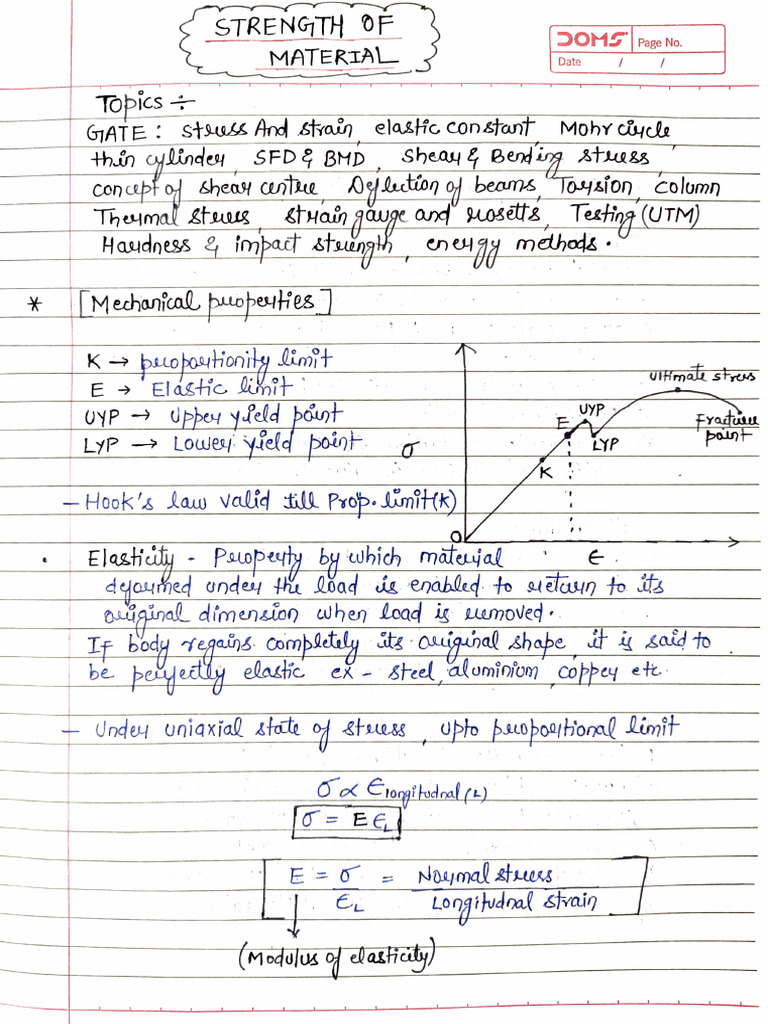 STRENGTH OF
MATERIAL
DOMS Page No.
Date / /
Topics ÷
GATE : stress And strain, elastic constant, Mohr circle
thin cylinder, SFD & BMD, Shear & Bending stress,
concept of shear centre, Deflection of beams, Torsion, column
Thermal stress, strain gauge and rosetts, Testing (UTM)
Hardness & impact strength, energy methods.
* [Mechanical properties]
K → proportionity limit
E → Elastic limit
UYP → Upper yield point
LYP → Lower yield point
σ
ultimate stress
UYP
E
LYP
Fracture
point
K
O
ϵ
- Hook's law valid till Prop. limit(K)
. Elasticity - Property by which material
deformed under the load is enabled to return to its
original dimension when load is removed.
If body regains completely its original shape, it is said to
be perfectly elastic ex - steel, aluminium, copper etc.
- Under uniaxial state of stress, upto proportional limit
σ ∝ ϵlongitudnal(L)
σ = E ϵL
E = σ / ϵL = Normal stress / Longitudnal strain
(Modulus of elasticity)